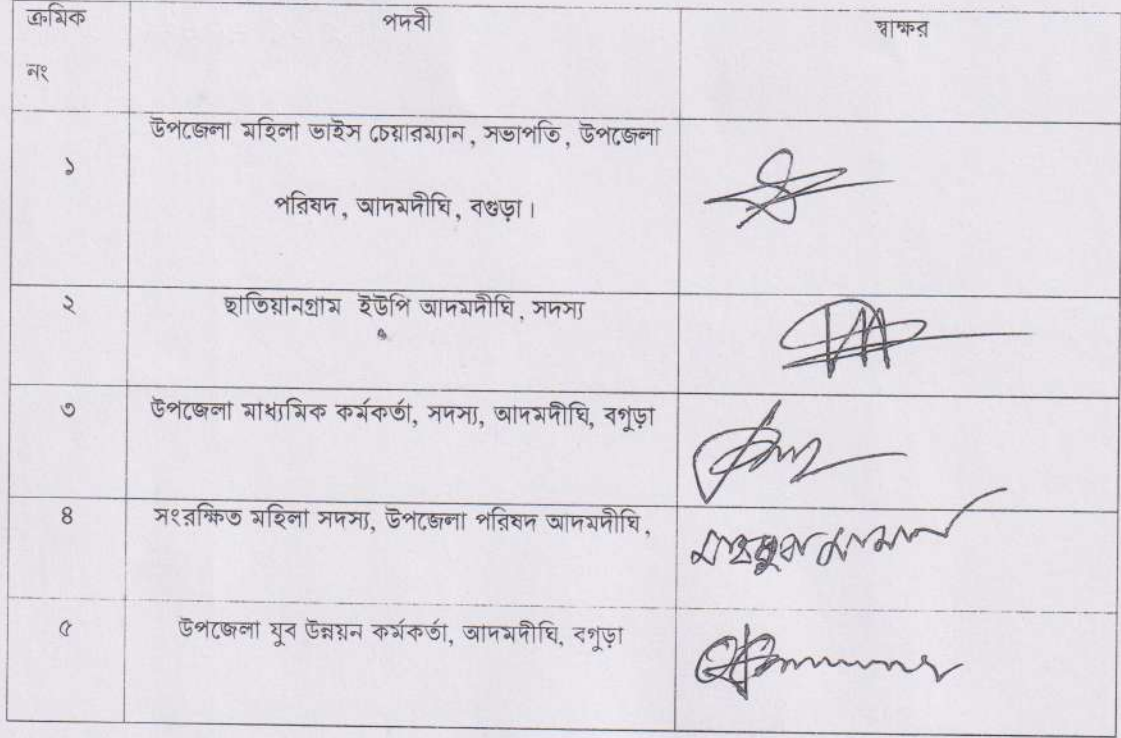 ক্রমিক নং পদবী স্বাক্ষর
১ উপজেলা মহিলা ভাইস চেয়ারম্যান, সভাপতি, উপজেলা
পরিষদ, আদমদীঘি, বগুড়া।
২ ছাতিয়ানগ্রাম ইউপি আদমদীঘি, সদস্য
৩ উপজেলা মাধ্যমিক কর্মকর্তা, সদস্য, আদমদীঘি, বগুড়া
৪ সংরক্ষিত মহিলা সদস্য, উপজেলা পরিষদ আদমদীঘি,
৫ উপজেলা যুব উন্নয়ন কর্মকর্তা, আদমদীঘি, বগুড়া